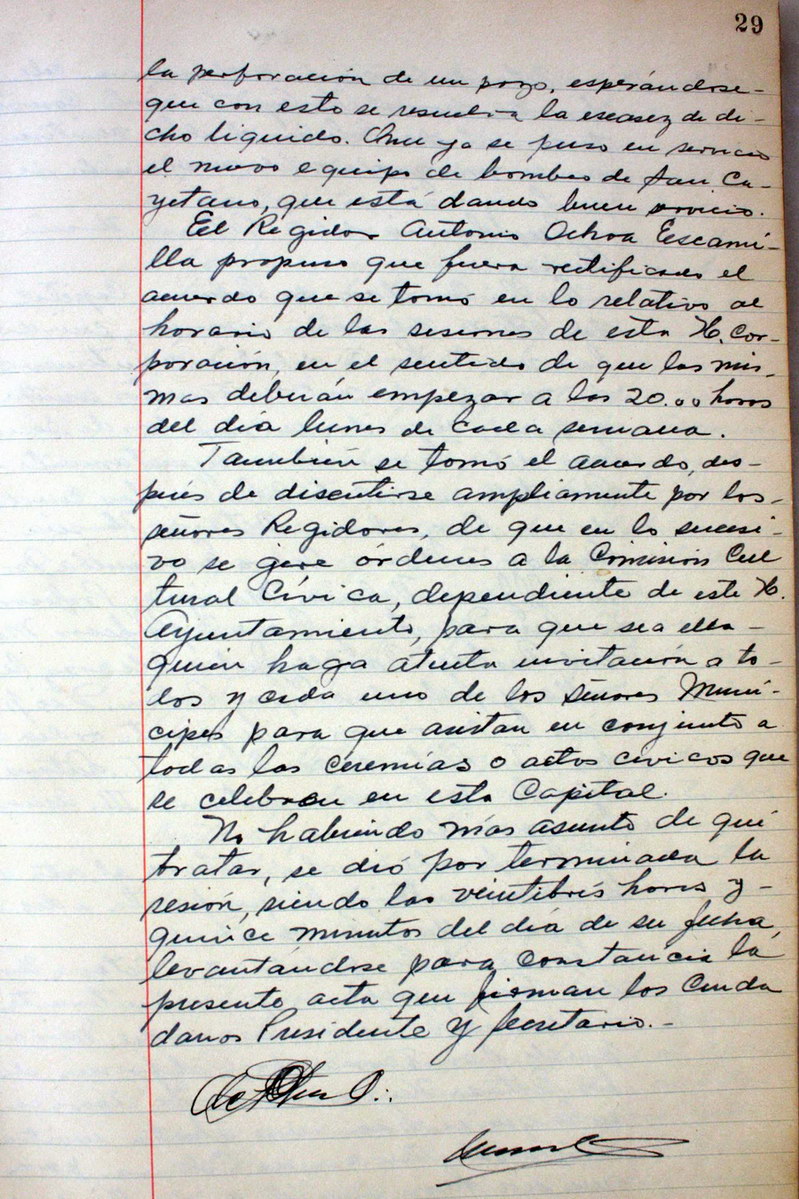 29
la perforación de un pozo, esperándose-
que con esto se resuelva la escasez de di-
cho liquido. Que ya se puso en servicio
el nuevo equipo de bombeo de San Ca-
yetano, que está dando buen servicio.
El Regidor Antonio Ochoa Escami-
lla propuso que fuera rectificado el
acuerdo que se tomó en lo relativo al
horario de las sesiones de esta H. Cor-
poración, en el sentido de que las mis-
mas deberán empezar a las 20.00 horas
del día lunes de cada semana.
También se tomó el acuerdo, des-
pués de discutirse ampliamente por los-
señores Regidores, de que en lo sucesi-
vo se gire órdenes a la Comisión Cul
tural Cívica, dependiente de este H.
Ayuntamiento, para que sea ella-
quien haga atenta invitación a to-
dos y cada uno de los señores Muní-
cipes para que asistan en conjunto a
todas las ceremias o actos cívicos que
se celebren en esta Capital.
No habiendo más asunto de qué
tratar, se dió por terminada la
sesión, siendo las veintitrés horas y-
quince minutos del día de su fecha,
levantándose para constancia la
presente acta que firman los Ciuda
danos Presidente y Secretario.-